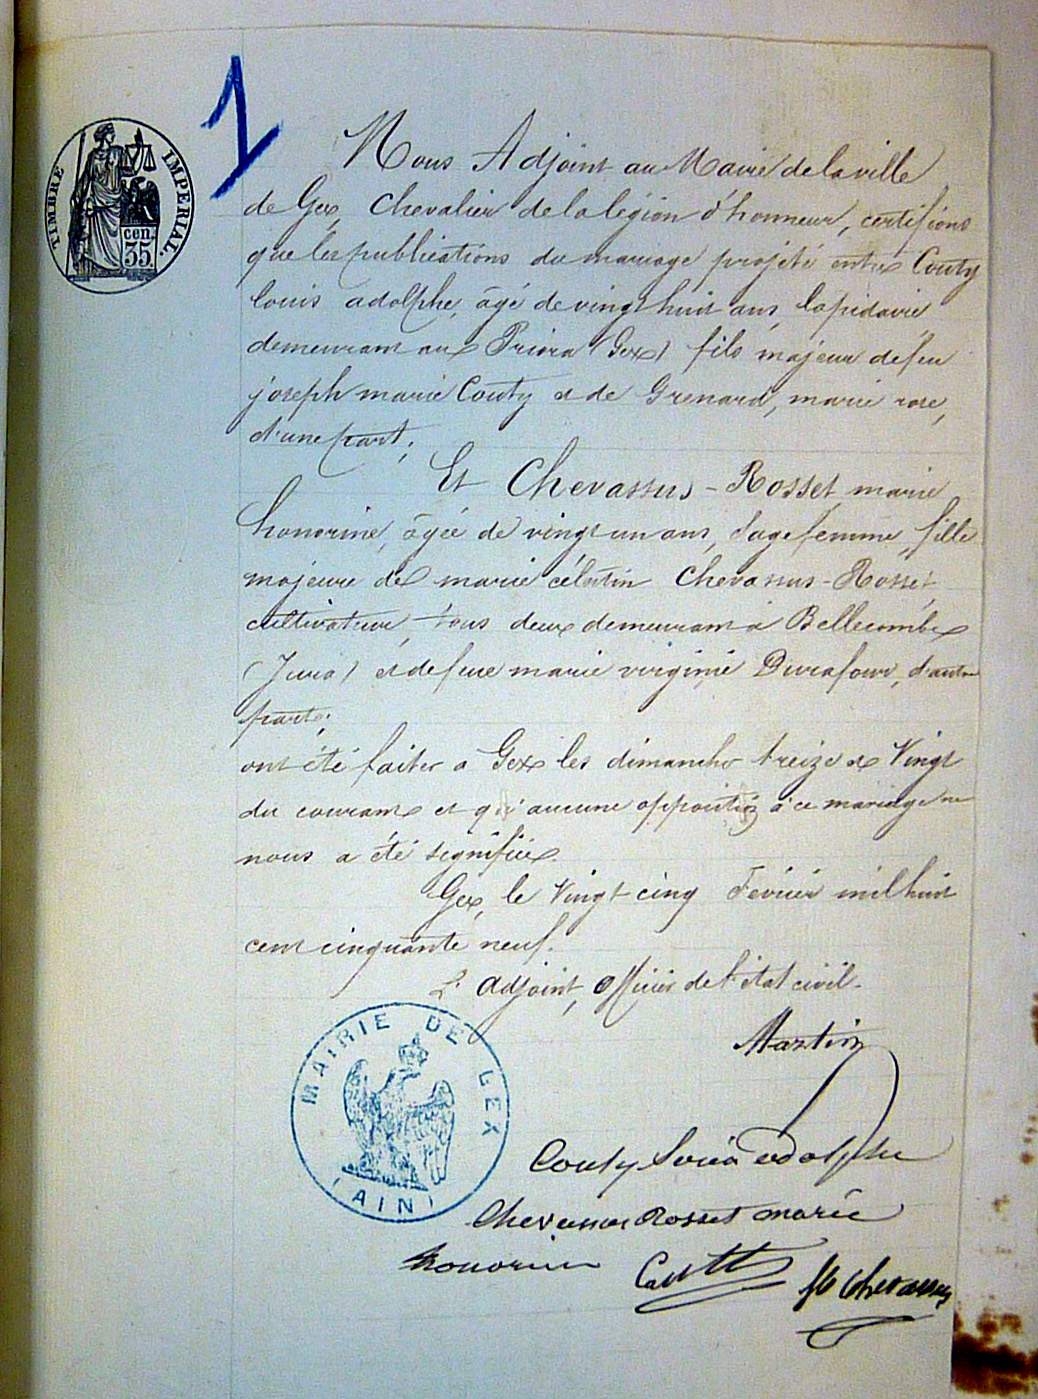 1
TIMBRE IMPERIAL.
35 cen.
Nous Adjoint au Maire de la ville
de Gex, Chevalier de la légion d'honneur, certifions
que les publications du mariage projeté entre Couty
louis adolphe, âgé de vingt huit ans, lapidaire
demeurant aux (Gex) fils majeur de feu
joseph marie Couty et de Grenard, marie rose,
d'une part;
Et Chevassus-Rosset marie
honorine, âgée de vingt un ans, sage femme, fille
majeure de marie célestin Chevassus-Rosset,
cultivateur, tous deux demeurant à Bellecombe
(Jura) et de feue marie virginie Durafour, d'autre
part;
ont été faites a Gex les dimanche treize et Vingt
du courant et qu'aucune opposition à ce mariage ne
nous a été signifiée.
Gex, le Vingt cinq Fevrier mil huit
cent cinquante neuf.
L'adjoint, officier de l'état civil.
Martin
MAIRIE DE GEX
(AIN)
Couty Louis adolphe
Chevassus Rosset marie
honorine
Chevassus